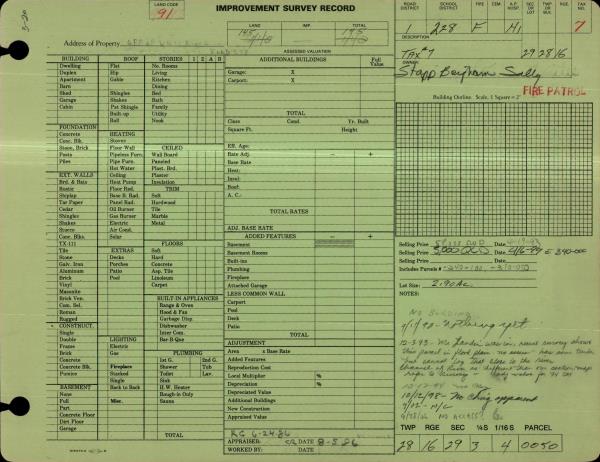 3-20
LAND CODE
91
IMPROVEMENT SURVEY RECORD
ROAD DISTRICT
SCHOOL DISTRICT
FIRE
CEM
A.P. HOSP
SEC OR LOT
TWP OR BLK
RGE
TAX NO.
1 228 F H1 7
DESCRIPTION
LAND IMP. TOTAL
Address of Property
ASSESSED VALUATION
TAX #7 29 28 16
OWNER
Stapp Bergham Sally
FIRE PATROL
Building Outline. Scale, 1 Square = 2'
BUILDING ROOF STORIES 1 2 A B
Dwelling Flat No. Rooms
Duplex Hip Living
Apartment Gable Kitchen
Barn Dining
Shed Shingles Bed
Garage Shakes Bath
Cabin Pat Shingle Family
Built up Utility
Roll Nook
FOUNDATION
Concrete HEATING
Conc. Blk. Stoves
Stone, Brick Floor Wall CEILED
Posts Pipeless Furn. Wall Board
Piles Pipe Furn. Paneled
Hot Water Plast. Brd.
EXT. WALLS Ceiling Plaster
Brd. & Bats Heat Pump Insulation
Rustic Floor Rad. TRIM
Shiplap Base B. Rad. Soft
Tar Paper Panel Rad. Hardwood
Cedar Oil Burner Tile
Shingles Gas Burner Marble
Shakes Electric Metal
Stucco Air Cond.
Conc. Blks. Solar
TX-111 FLOORS
Tile EXTRAS Soft
Stone Decks Hard
Galv. Iron Porches Concrete
Aluminum Patio Asp. Tile
Brick Pool Linoleum
Vinyl Carpet
Masonite
Brick Ven. BUILT-IN APPLIANCES
Com. Sel. Range & Oven
Roman Hood & Fan
Rugged Garbage Disp.
CONSTRUCT. Dishwasher
Single Inter Com.
Double LIGHTING Bar-B-Que
Frame Electric
Brick Gas PLUMBING
Concrete 1st G. 2nd G.
Concrete Blk. Fireplace Shower Tub
Pumice Stacked Toilet Lav.
Single Sink
BASEMENT Back to Back H.W. Heater
None Rough-in Only
Full Misc. Sauna
Part.
Concrete Floor
Dirt Floor
Garage TOTAL
ADDITIONAL BUILDINGS Full Value
Garage: X
Carport: X
TOTAL
Class Cond. Yr. Built
Square Ft. Height
Eff. Age:
Rate Adj. − +
Base Rate
Heat:
Insul:
Bsmt:
A. C.:
TOTAL RATES
ADJ. BASE RATE
ADDED FEATURES − +
Basement
Basement Rooms
Built-ins
Plumbing
Fireplace
Attached Garage
LESS COMMON WALL
Carport
Pool
Deck
Patio
TOTAL
ADJUSTMENT
Area x Base Rate
Added Features
Reproduction Cost
Local Multiplier %
Depreciation %
Depreciated Value
Additional Buildings
New Construction
Appraised Value
RG 6-24-86
APPRAISER: DATE 8-5-86
WORKED BY: DATE
Selling Price Date
Selling Price Date
Selling Price Date
Includes Parcels #
Lot Size 2.90 Ac
NOTES:
No Building
Nothing yet
10/12/98 - No Chng apparent
TWP RGE SEC ¼S 1/16S PARCEL
28 16 29 3 4 0050